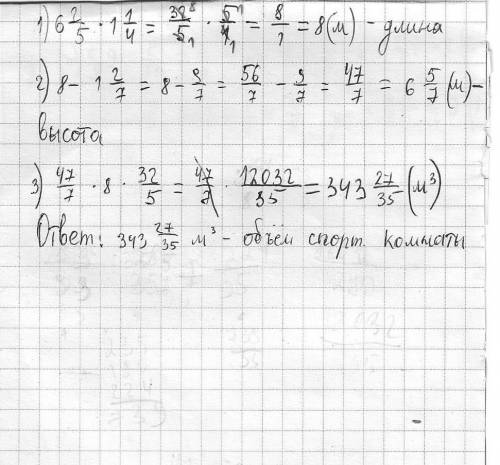 1) 6 2/5 · 1 1/4 = 32/5 · 5/4 = 8/1 = 8 (м) - длина
2) 8 - 1 2/7 = 8 - 9/7 = 56/7 - 9/7 = 47/7 = 6 5/7 (м) -
высота
3) 47/7 · 8 · 32/5 = 47/7 · 12032/35 = 343 27/35 (м³)
Ответ: 343 27/35 м³ - объём спорт. комнаты